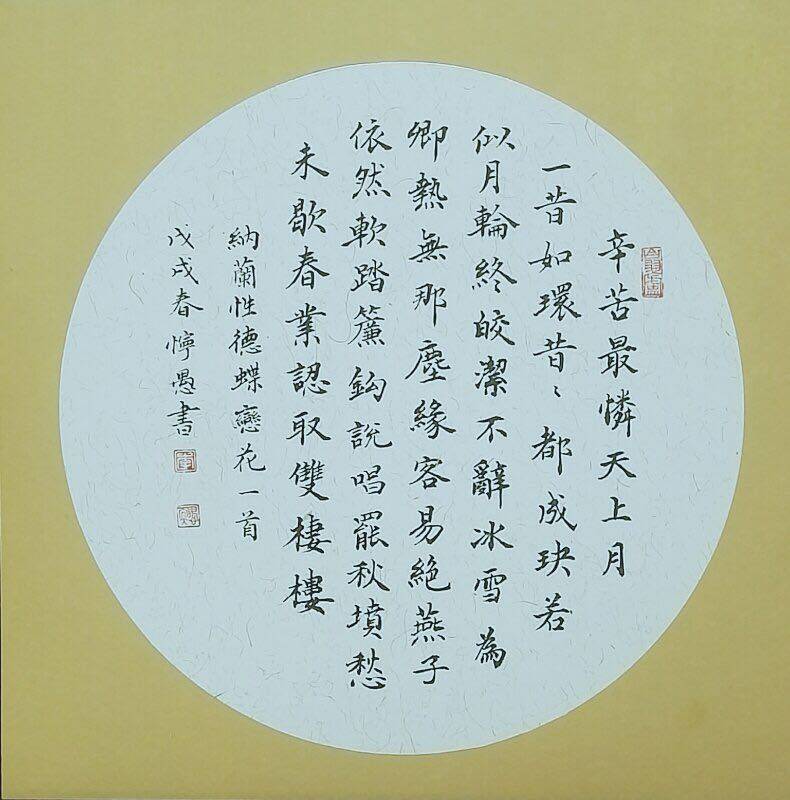 辛苦最憐天上月
一昔如環昔〻都成玦若
似月輪終皎潔不辭冰雪為
卿熱無那塵緣容易絕燕子
依然軟踏簾鈎說唱罷秋墳愁
未歇春業認取雙棲樓
納蘭性德蝶戀花一首
戊戌春懧愚書